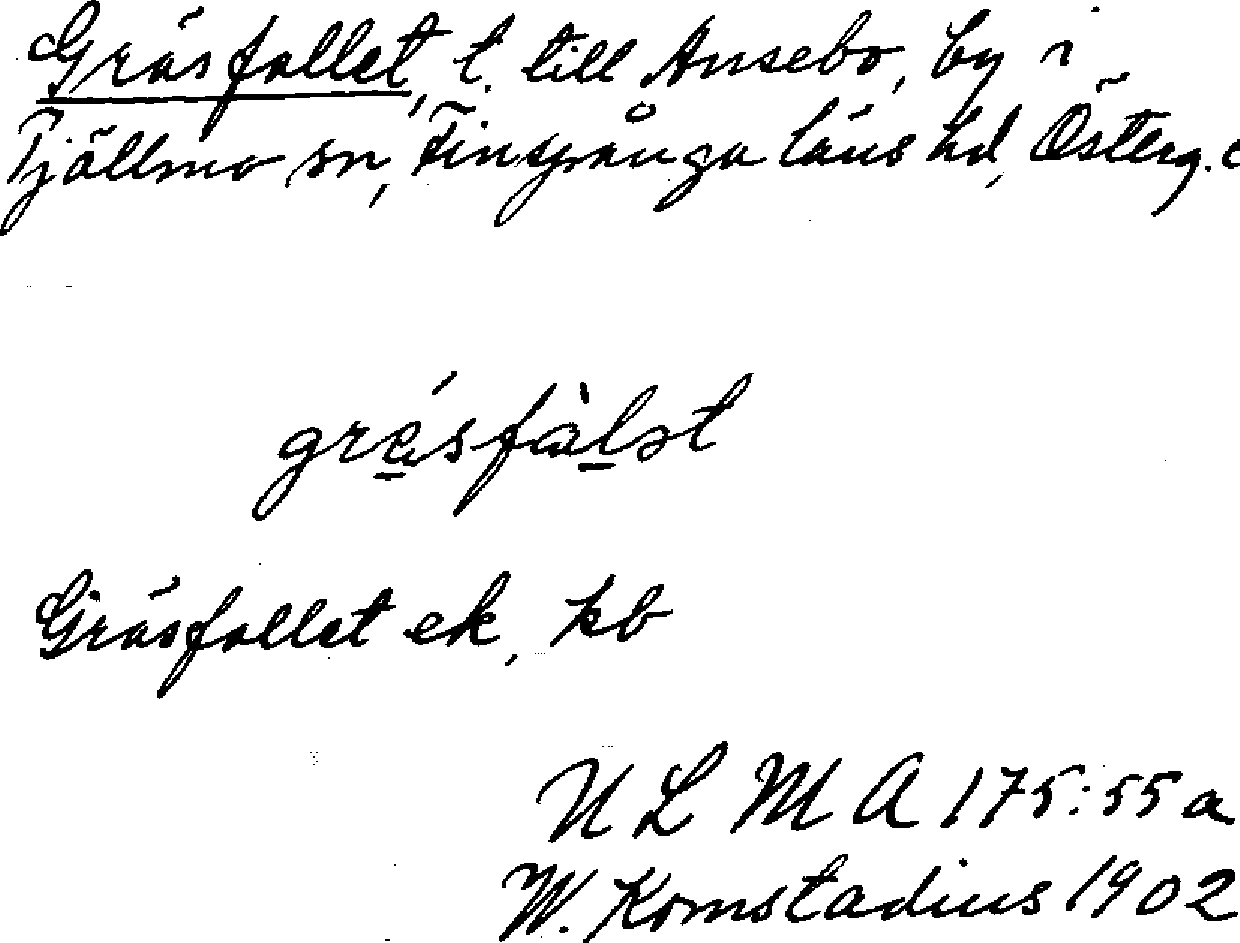 Gräsfallet, t. till Ansebo, by i
Tjällmo sn, Finspånga läns hd, Österg.
gräsfàlət
Gräsfallet ek, kb
ULMA 175:55a
W. Komstadius 1902